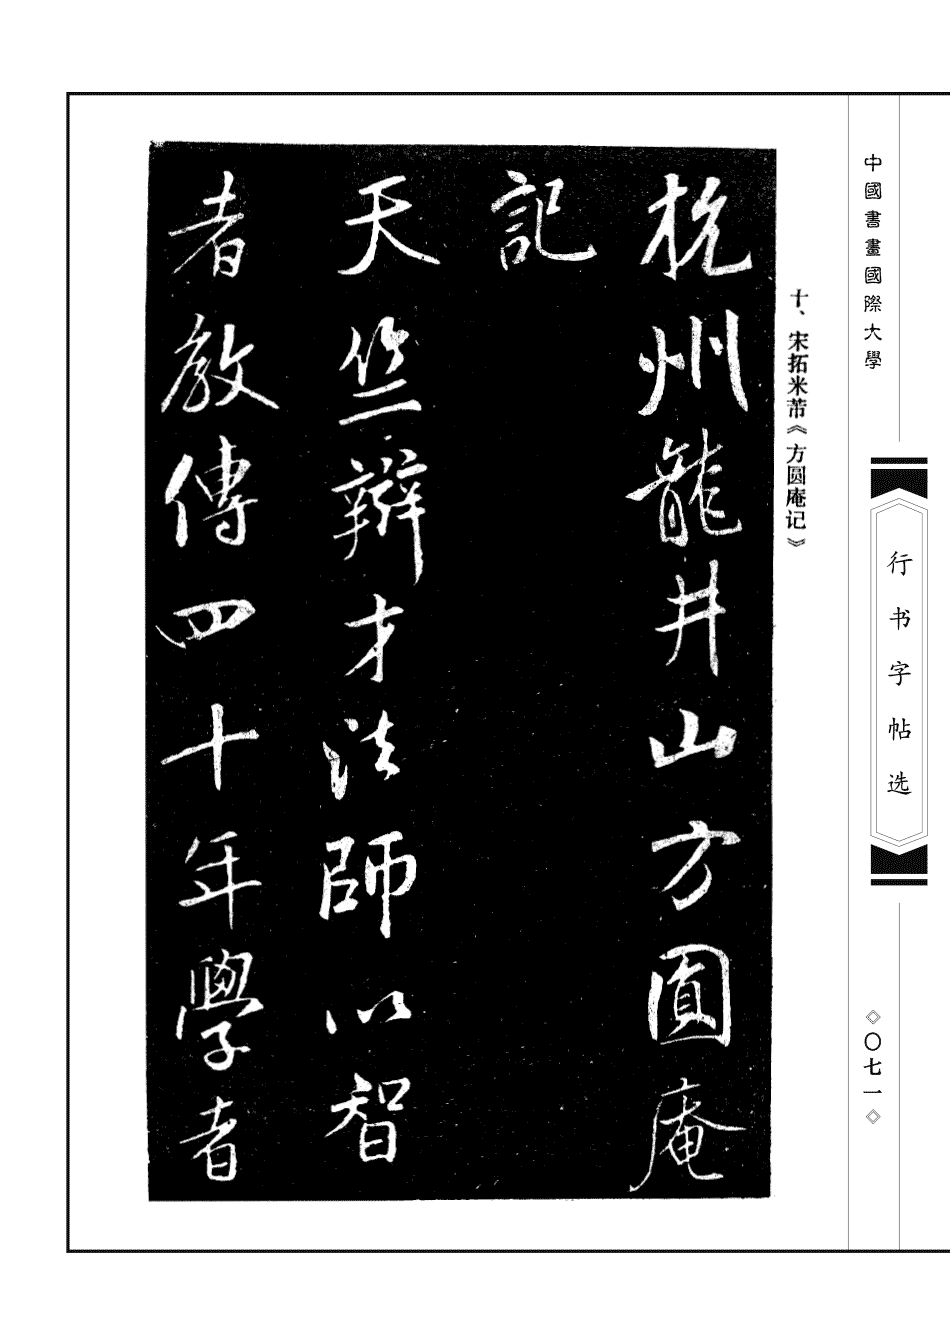 中國書畫國際大學
行书字帖选
◇〇七一◇
十、宋拓米芾《方圆庵记》
杭州龍井山方圓庵
記
天竺辯才法師以智
者教傳四十年學者